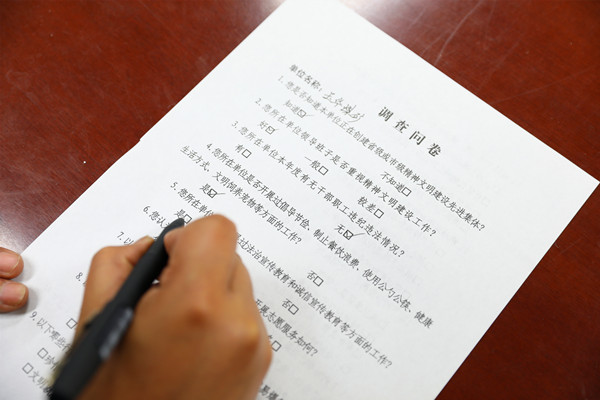 调查问卷
单位名称:
1、您是否知道本单位正在创建省级或市级精神文明建设先进集体?
知道☑ 不知道□
2、您所在单位领导班子是否重视精神文明建设工作?
好☑ 一般□ 较差□
3、您所在单位本年度有无干部职工违纪违法情况?
有□ 无☑
4、您所在单位是否开展过倡导节俭、制止餐饮浪费、使用公勺公筷、健康
生活方式、文明饲养宠物等方面的工作?
是☑ 否□
5、您所在单位 过法治宣传教育和诚信宣传教育等方面的工作?
是□ 否□
6、您认 开展志愿服务如何?
7、以
8、
9、以下哪些
□
□文明